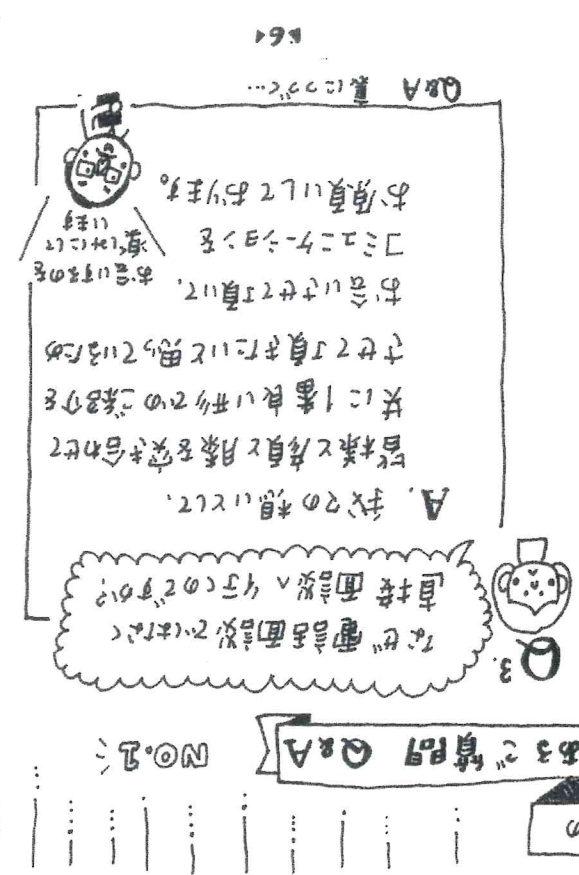 の
あるご質問 Q&A NO.1
Q3.
なぜ電話面談ではなく
直接面談へ行くのですか?
A. 我々の想いとして、
皆様と顔と膝を突き合わせて
共に1番良い形でのご紹介を
させて頂きたいと思っているため
お会いさせて頂いて、
コミュニケーションを
お願いしております。
お会いするのを
楽しみにして
います
Q&A 裏につづく…